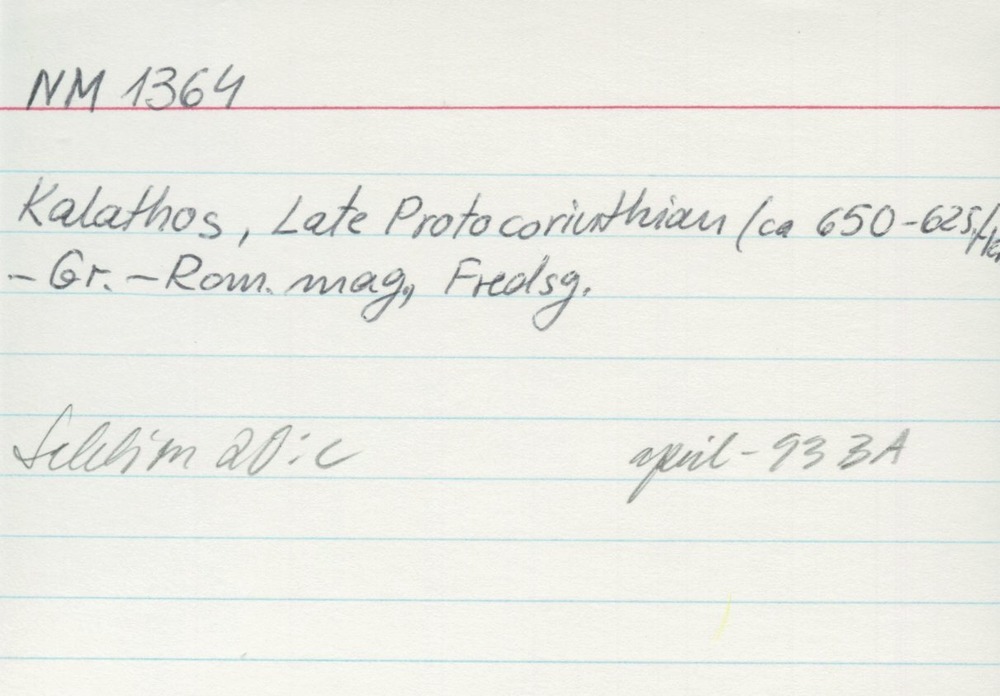 NM 1364
Kalathos, Late Protocorinthian (ca 650-625,
- Gr. - Rom. mag, Fredsg.
20:c april - 93 BA